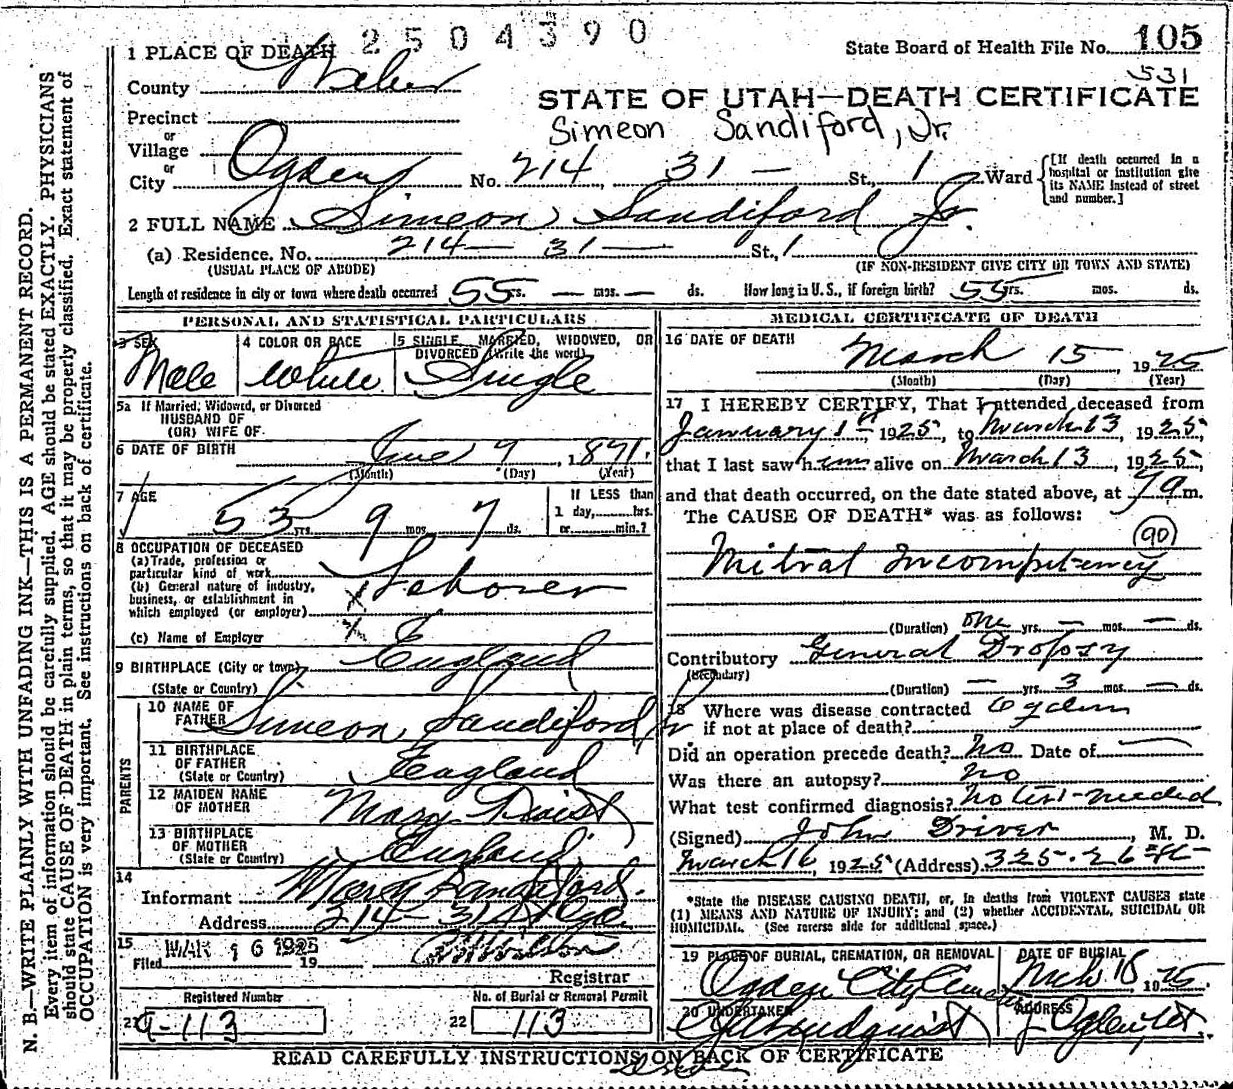 2504390
1 PLACE OF DEATH
State Board of Health File No. 105
531
County Weber
STATE OF UTAH—DEATH CERTIFICATE
Simeon Sandiford, Jr.
Precinct
or
Village
or
City Ogden, No. 214, 31 — St., 1 Ward
[If death occurred in a hospital or institution give its NAME instead of street and number.]
2 FULL NAME Simeon Sandiford Jr.
(a) Residence. No. 214 — 31 — St., 1
(USUAL PLACE OF ABODE) (IF NON-RESIDENT GIVE CITY OR TOWN AND STATE)
Length of residence in city or town where death occurred 55 yrs. — mos. — ds. How long in U.S., if foreign birth? 55 yrs. mos. ds.
PERSONAL AND STATISTICAL PARTICULARS
3 SEX
Male
4 COLOR OR RACE
White
5 SINGLE, MARRIED, WIDOWED, OR DIVORCED (Write the word)
Single
5a If Married, Widowed, or Divorced
HUSBAND OF
(OR) WIFE OF
6 DATE OF BIRTH June 9, 1871.
(Month) (Day) (Year)
7 AGE
53 yrs. 9 mos. 7 ds.
If LESS than
1 day,......hrs.
or......min.?
8 OCCUPATION OF DECEASED
(a) Trade, profession or
particular kind of work
(b) General nature of industry,
business, or establishment in
which employed (or employer)
Laborer
(c) Name of Employer
9 BIRTHPLACE (City or town) England
(State or Country)
PARENTS
10 NAME OF FATHER Simeon Sandiford
11 BIRTHPLACE OF FATHER (State or Country) England
12 MAIDEN NAME OF MOTHER Mary
13 BIRTHPLACE OF MOTHER (State or Country) England
14
Informant Mary Sandiford.
Address 214-31 St Oge
15
Filed MAR 16 1925 19
Registrar
Registered Number
21 9-113
No. of Burial or Removal Permit
22 113
MEDICAL CERTIFICATE OF DEATH
16 DATE OF DEATH
March 15, 1925
(Month) (Day) (Year)
17 I HEREBY CERTIFY, That I attended deceased from
January 1st, 1925, to March 13, 1925,
that I last saw him alive on March 13, 1925,
and that death occurred, on the date stated above, at 7 a m.
The CAUSE OF DEATH* was as follows:
90
Mitral Incompetency
(Duration) One yrs. — mos. — ds.
Contributory General Dropsy
(Secondary)
(Duration) — yrs. 3 mos. — ds.
18 Where was disease contracted Ogden
if not at place of death?
Did an operation precede death? No Date of —
Was there an autopsy? no
What test confirmed diagnosis? no test needed
(Signed) John Driver, M. D.
March 16, 1925 (Address) 325. 26 St-
*State the DISEASE CAUSING DEATH, or, in deaths from VIOLENT CAUSES state
(1) MEANS AND NATURE OF INJURY; and (2) whether ACCIDENTAL, SUICIDAL OR
HOMICIDAL. (See reverse side for additional space.)
19 PLACE OF BURIAL, CREMATION, OR REMOVAL
Ogden City Cemetery
DATE OF BURIAL
Mch 18, 1925
20 UNDERTAKER
Lindquist
ADDRESS
Ogden, Ut.
READ CAREFULLY INSTRUCTIONS ON BACK OF CERTIFICATE
N. B.—WRITE PLAINLY WITH UNFADING INK—THIS IS A PERMANENT RECORD.
Every item of information should be carefully supplied. AGE should be stated EXACTLY. PHYSICIANS
should state CAUSE OF DEATH in plain terms, so that it may be properly classified. Exact statement of
OCCUPATION is very important. See instructions on back of certificate.